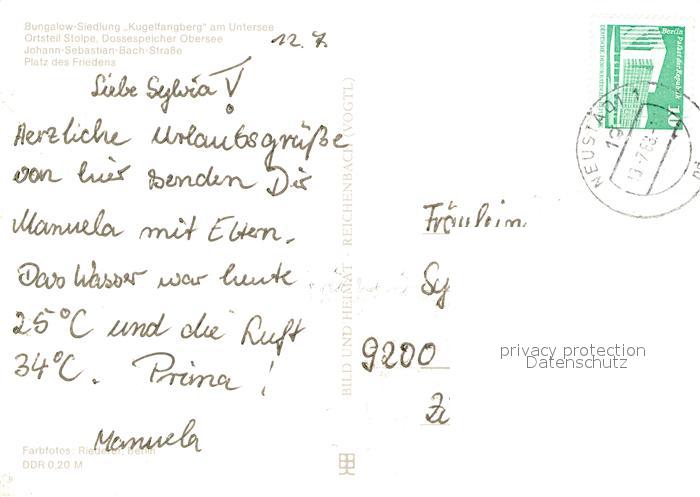 Bungalow-Siedlung „Kugelfangberg" am Untersee
Ortsteil Stolpe, Dossespeicher Obersee
Johann-Sebastian-Bach-Straße
Platz des Friedens
12.7
Liebe Sylvia!
Herzliche Urlaubsgrüße
von hier senden Dir
Manuela mit Eltern.
Das Wasser war heute
25°C und die Luft
34°C. Prima!
Manuela
Farbfotos: Riederer, Berlin
DDR 0,20 M
BILD UND HEIMAT · REICHENBACH (VOGTL)
Berlin
Palast der Republik
10
NEUSTADT
Fräulein
Sy
9200
Zi
privacy protection
Datenschutz